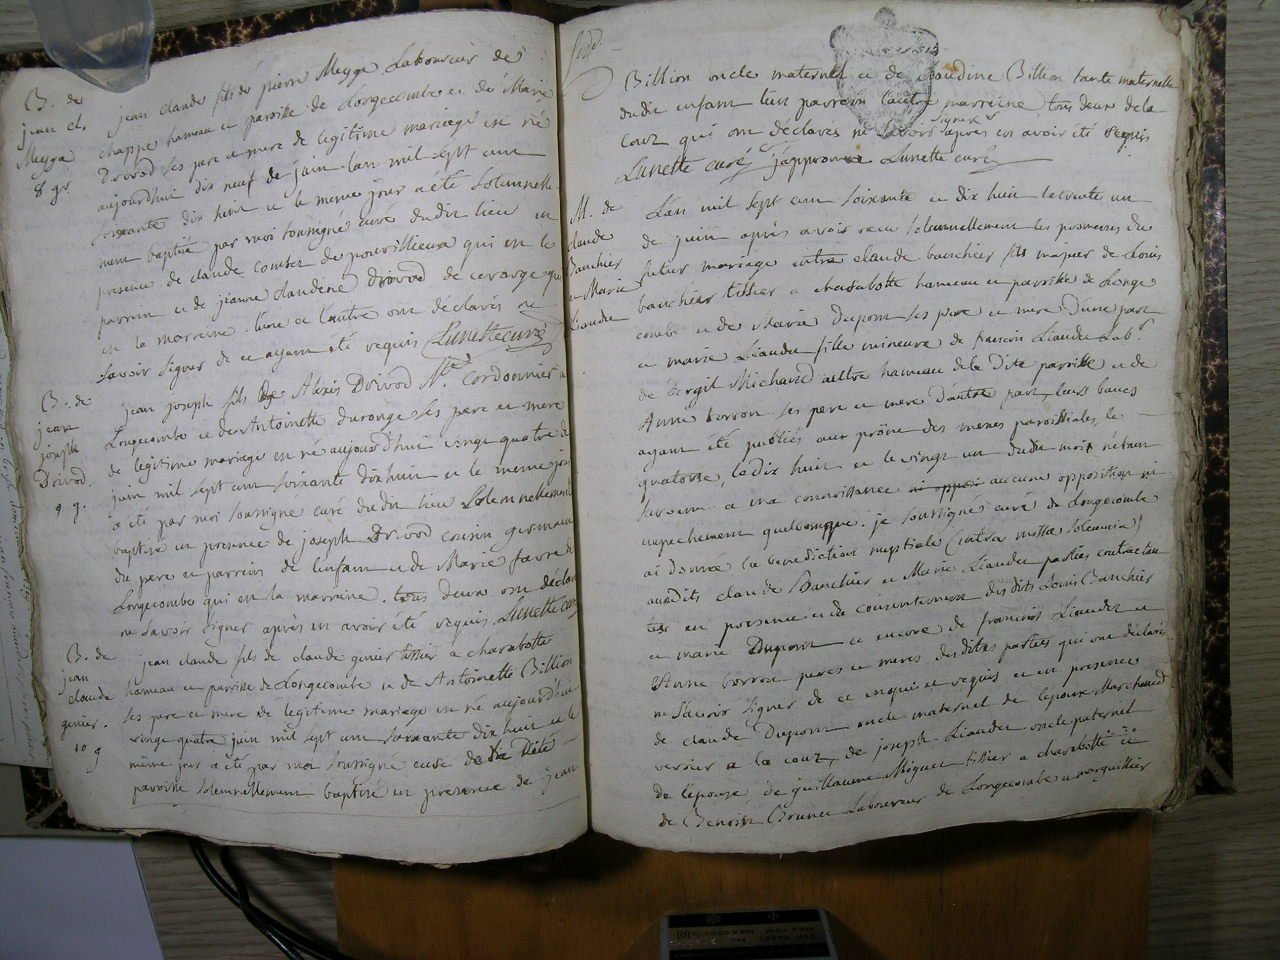 B. de
jean cl.
Meyga
8 gr
jean claude fils de pierre Meyge Laboureur de
chappe hameau et paroisse de Longecombe et de Marie
Drivod ses pere et mere de legitime mariage est né
aujourdhui dix neuf de juin lan mil sept cent
soixante dix huit et le meme jour a été solemnelle
ment baptisé par moi soussigné curé dudit lieu en
presence de claude combet de pourvillieuse qui est le
parrein et de jeanne claudine Drovod de qui
est la marraine. l'une et l'autre ont déclarés ne
savoir signer de ce ayant été requis Lunette curé
B. de
jean
joseph
Drivod.
9 g.
jean joseph fils de Alexis Drivod Me. cordonnier a
Longecombe et de Antoinette Durouge ses pere et mere
de legitime mariage est né aujourd'hui vingt quatre de
juin mil sept cent soixante dix huit et le meme jour
a été par moi soussigné curé dudit lieu solemnellement
baptisé en presence de joseph Drivod cousin germain
du pere et parrein de l'enfant et de Marie favre de
Longecombe qui est la marraine. tous deux ont déclaré
ne savoir signer après en avoir été requis. Lunette curé
B. de
jean
claude
ginier.
10 g
jean claude fils de claude ginier tissier a charabotte
hameau et paroisse de Longecombe et de Antoinette Billion
ses pere et mere de legitime mariage est né aujourd'hui
vingt quatre juin mil sept cent soixante dix huit et le
même jour a été par moi soussigné curé de la dite
paroisse solemnellement baptisé en presence de jean
Billion oncle maternel et de claudine Billion tante maternelle
dudit enfant l'un parrein l'autre marreine tous deux de la
couz qui ont déclarés ne savoir signer après en avoir été requis
Lunette curé j'approuve Lunette curé
M. de
claude
Bauchier
et Marie
Liaudet
L'an mil sept cent soixante et dix huit le trente un
de juin après avoir reçu solemnellement les promesses du
futur mariage entre claude bauchier fils majeur de Louis
bauchier tissier a charabotte hameau et paroisse de Longe
combe et de Marie Dupont ses pere et mere d'une part
et marie Liaudet fille mineure de francois Liaudet Labr
de Michaud autre hameau de la dite paroisse et de
Anne borron ses pere et mere d'autre part, leurs bancs
ayant été publiés aux prône des messes paroissiales, le
quatorse, le dix huit et le vingt un dudit mois n'étant
survenu a ma connoissance aucune opposition ni
empechement quelconque. je soussigné curé de Longecombe
ai donné la benediction nuptiale (intra missæ solemnia)
auxdits claude Bauchier et Marie Liaudet parties contractan
tes en presence et du consentement desdits Louis Bauchier
et marie Dupont et encore de francois Liaudet et
Anne borron peres et meres desdites parties qui ont déclarés
ne sçavoir signer de ce enquis et requis et en presence
de claude Dupont oncle maternel de l'epoux Marchand
verrier a la couz, de joseph Liaudet oncle paternel
de l'epouse, de guillaume Miguet tissier a charabotte et
de Benoist Brunet Laboureur de Longecombe et marguillier